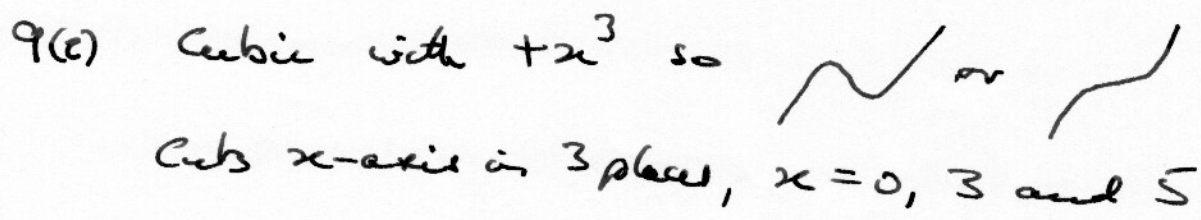 9(c) Cubic with +x³ so or
Cuts x-axis in 3 places, x = 0, 3 and 5